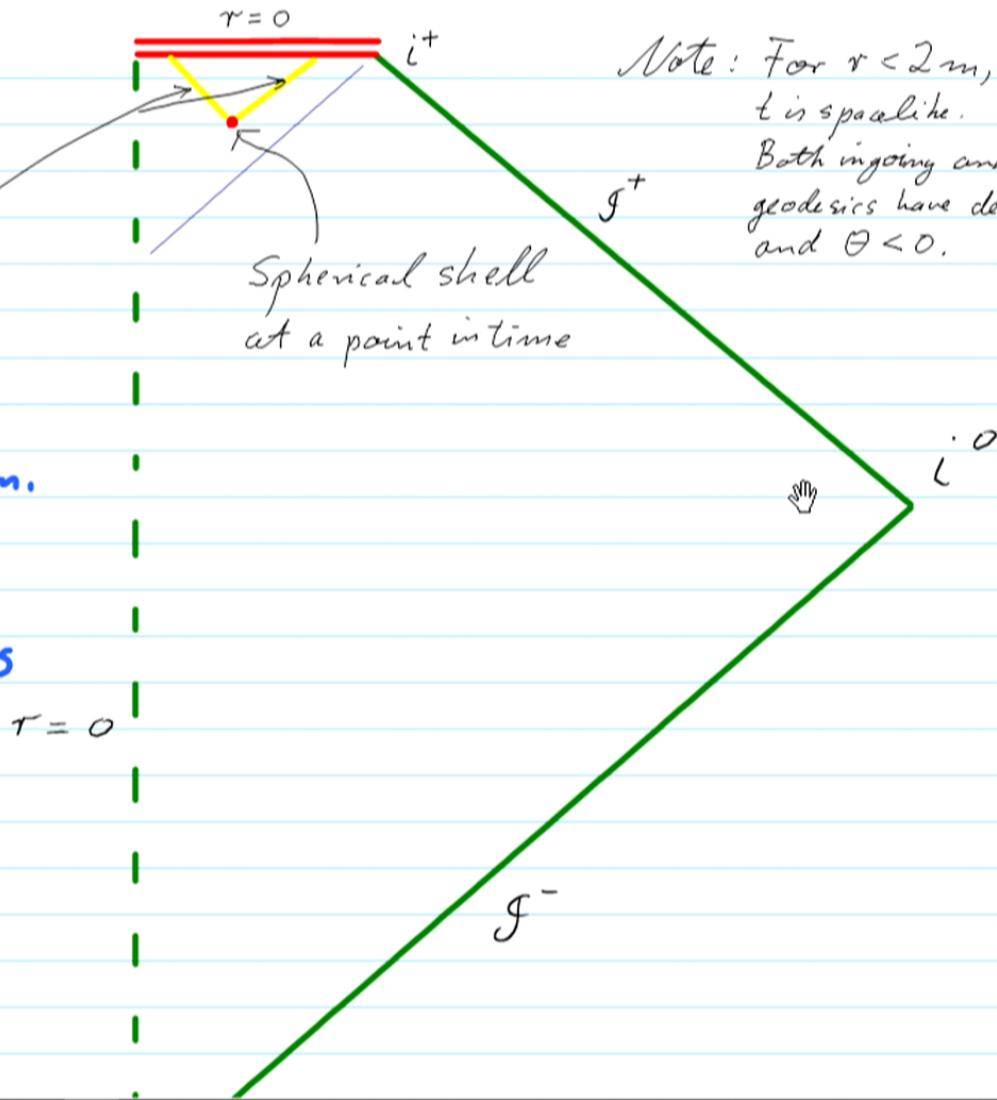 r = 0
i⁺
Note: For r < 2m,
t is spacelike.
Both ingoing an
geodesics have de
and θ < 0.
𝓘⁺
Spherical shell
at a point in time
i⁰
n.
s
r = 0
𝓘⁻